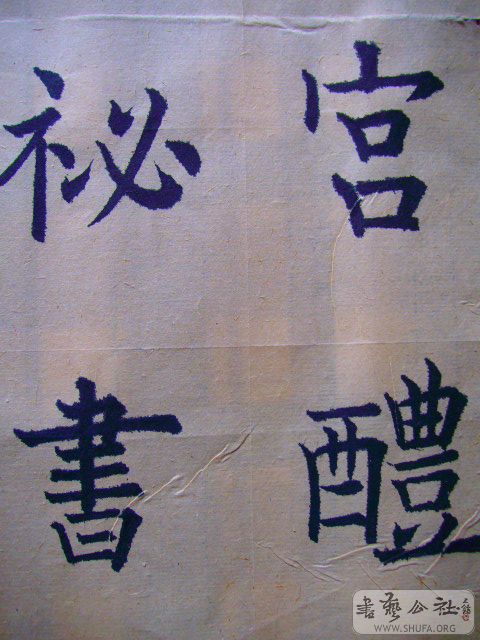 宫醴
祕書
書藝公社
WWW.SHUFA.ORG